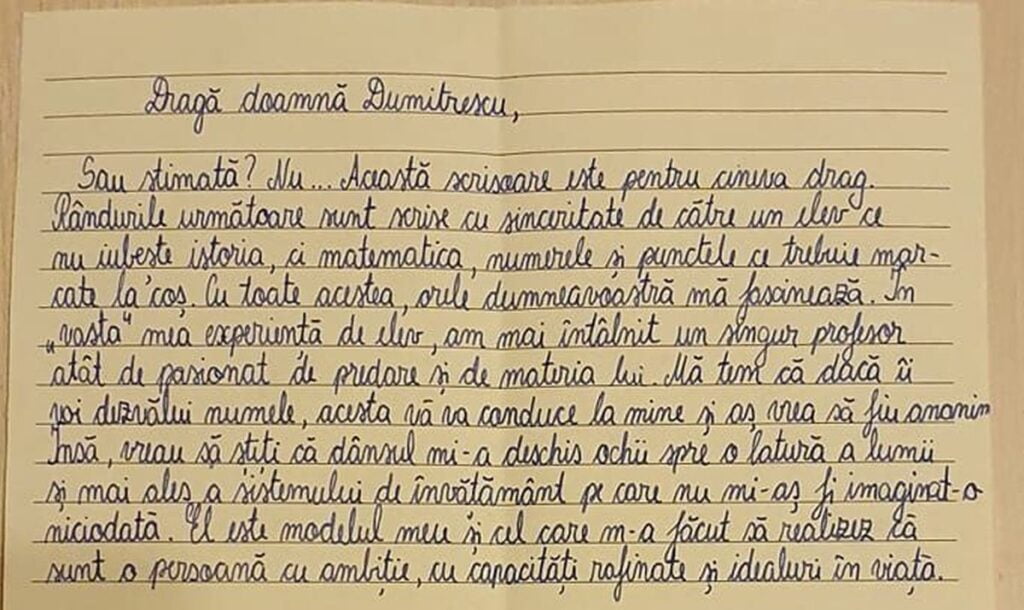 Dragă doamnă Dumitrescu,
Sau stimată? Nu... Această scrisoare este pentru cineva drag.
Rândurile următoare sunt scrise cu sinceritate de către un elev ce
nu iubește istoria, ci matematica, numerele și punctele ce trebuie mar-
cate la coș. Cu toate acestea, orele dumneavoastră mă fascinează. În
„vasta" mea experiență de elev, am mai întâlnit un singur profesor
atât de pasionat de predare și de materia lui. Mă tem că dacă îi
voi dezvălui numele, acesta vă va conduce la mine și aș vrea să fiu anonim
Însă, vreau să știți că dânsul mi-a deschis ochii spre o latură a lumii
și mai ales a sistemului de învățământ pe care nu mi-aș fi imaginat-o
niciodată. El este modelul meu și cel care m-a făcut să realizez că
sunt o persoană cu ambiție, cu capacități rafinate și idealuri în viață.